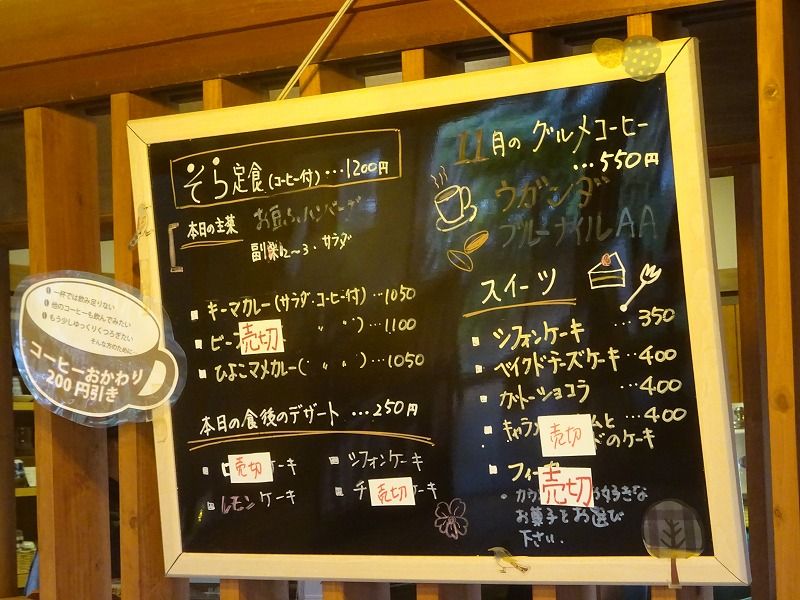 そら定食(コーヒー付)…1200円
本日の主菜 お豆ふハンバーグ
副菜2〜3・サラダ
キーマカレー(サラダ・コーヒー付)…1050
ビー 売切 〃 〃)…1100
ひよこマメカレー(〃 〃 〃)…1050
本日の食後のデザート …250円
売切 ケーキ
シフォンケーキ
レモンケーキ
チ 売切 ケーキ
11月のグルメコーヒー
…550円
ウガンダ
ブルーナイルAA
スイーツ
シフォンケーキ …350
ベイクドチーズケーキ …400
ガトーショコラ …400
キャラ 売切 ムと …400
ドのケーキ
フィ 売切
カウ お好きな
お菓子をお選び
下さい。
一杯では飲み足りない
他のコーヒーも飲んでみたい
もう少しゆっくりくつろぎたい
そんな方のために
コーヒーおかわり
200円引き